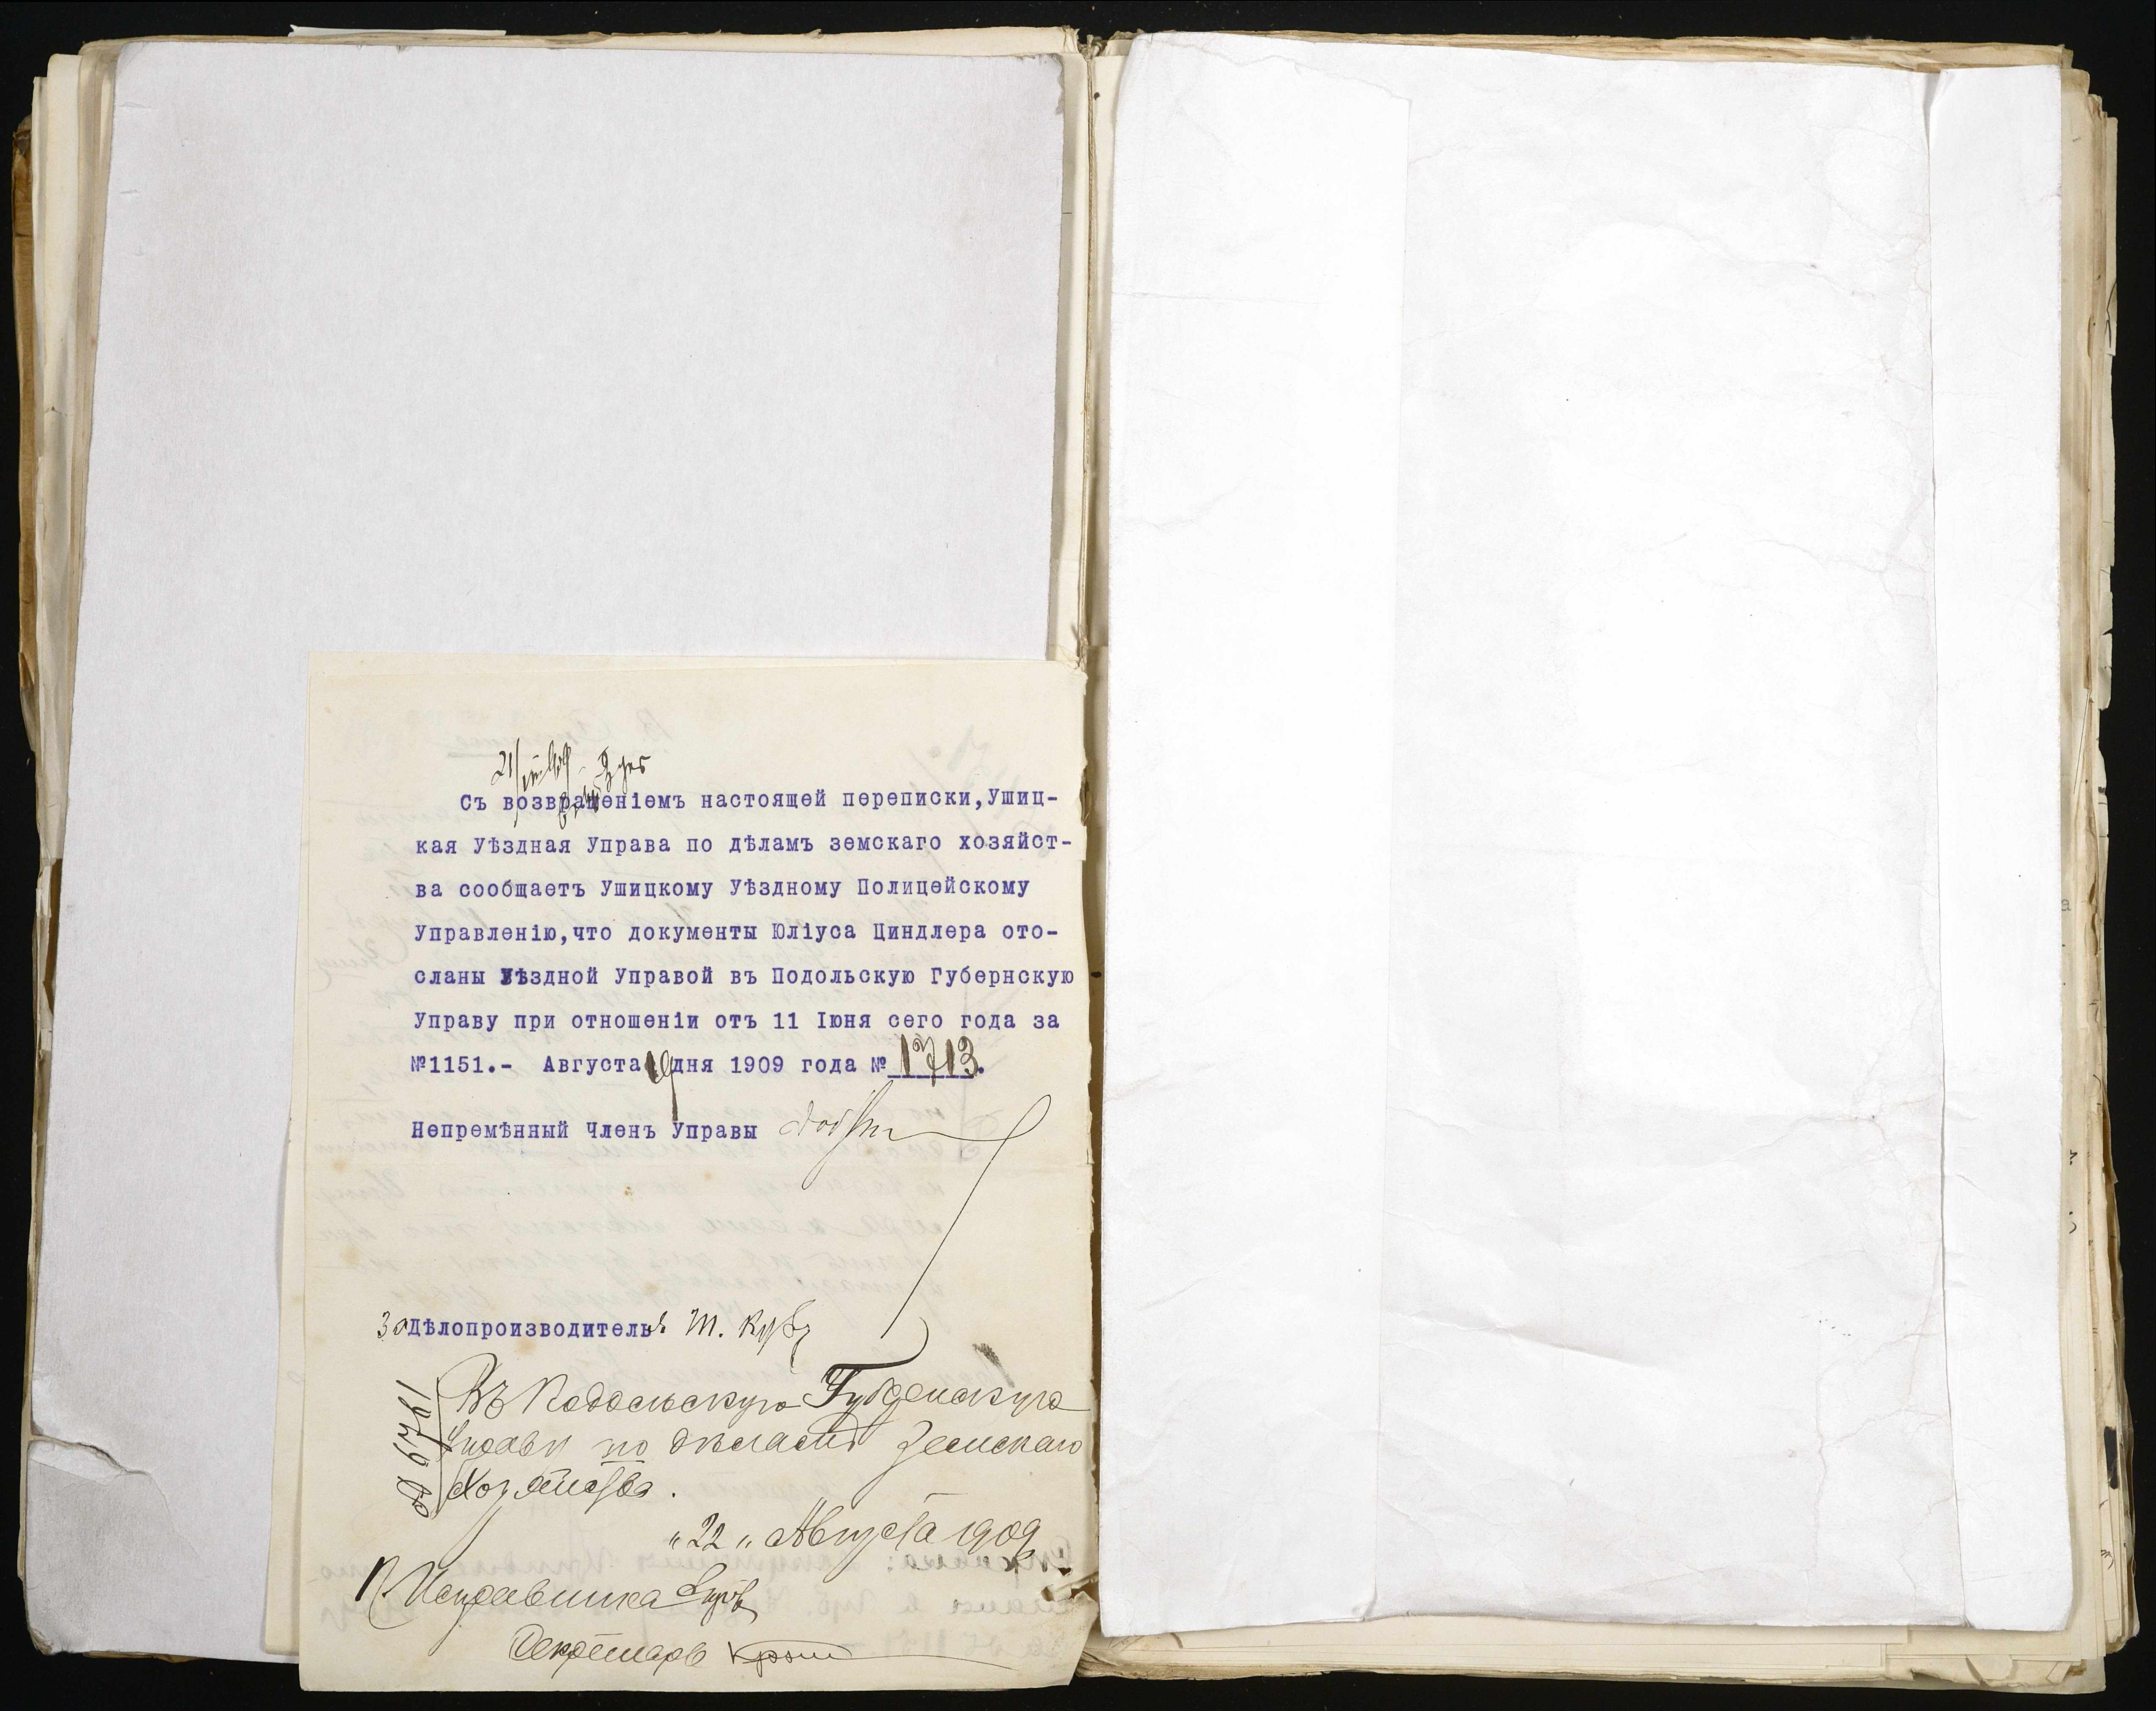 21/VIII 1909
Съ возвращеніемъ настоящей переписки,Ушиц-
кая Уѣздная Управа по дѣламъ земскаго хозяйст-
ва сообщаетъ Ушицкому Уѣздному Полицейскому
Управленію,что документы Юліуса Циндлера ото-
сланы Уѣздной Управой въ Подольскую Губернскую
Управу при отношеніи отъ 11 Іюня сего года за
№1151.- Августа 19 дня 1909 года № 1713.
Непремѣнный Членъ Управы
За дѣлопроизводителя
Въ Подольскую Губернскую
Управу по дѣламъ Земскаго
Хозяйства.
„22„ Августа 1909
Исправника
Секретарь